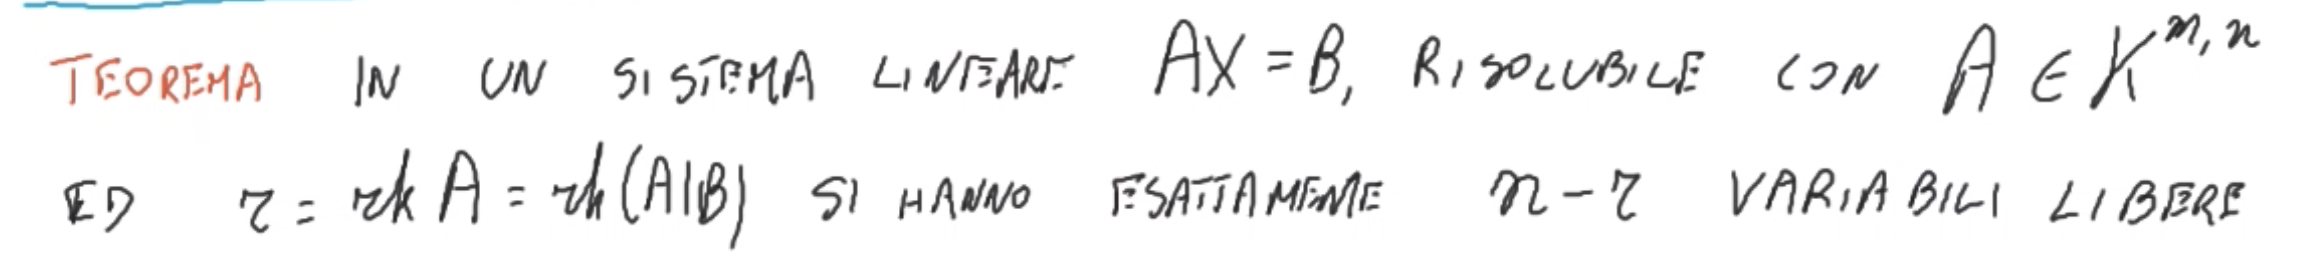 TEOREMA IN UN SISTEMA LINEARE AX = B, RISOLUBILE CON A ∈ K^{m,n}
ED r = rk A = rk(A|B) SI HANNO ESATTAMENTE n - r VARIABILI LIBERE